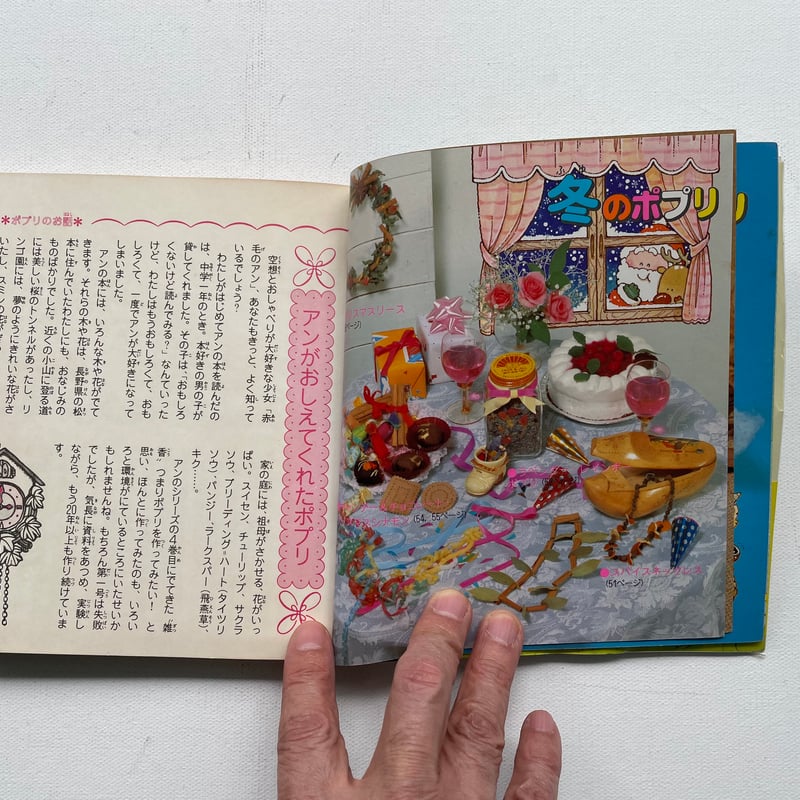 ＊ポプリのお話
アンがおしえてくれたポプリ
空想とおしゃべりが大好きな少女「赤
毛のアン」、あなたもきっと、よく知って
いるでしょう？
わたしがはじめてアンの本を読んだの
は、中学一年のとき。本好きの男の子が
貸してくれました。その子は、「おもしろ
くないけど読んでみる？」なんていった
けど、わたしはもうおもしろくて、おも
しろくて、一度でアンが大好きになって
しまいました。
アンの本には、いろんな木や花がでて
きます。それらの木や花は、長野県の松
本に住んでいたわたしにも、おなじみの
ものばかりでした。近くの小山に登る道
には美しい桜のトンネルがあったし、リ
ンゴ園には、夢のようにきれいな花がさ
家の庭には、祖母がさかせる、花がいっ
ぱい。スイセン、チューリップ、サクラ
ソウ、ブリーディング＝ハート（タイツリ
ソウ）、パンジー、ラークスパー（飛燕草）、
キク……。
アンのシリーズの４巻目にでてきた“雑
香”つまりポプリを作ってみたい！と
思い、ほんとに作ってみたのも、いろい
ろと環境がにているところにいたせいか
もしれませんね。もちろん第一号は失敗
でしたが、気長に資料をあつめ、実験し
ながら、もう20年以上も作り続けていま
す。
冬のポプリ
スマスリース
ページ）
（54、55ページ）
●スパイスネックレス
（51ページ）